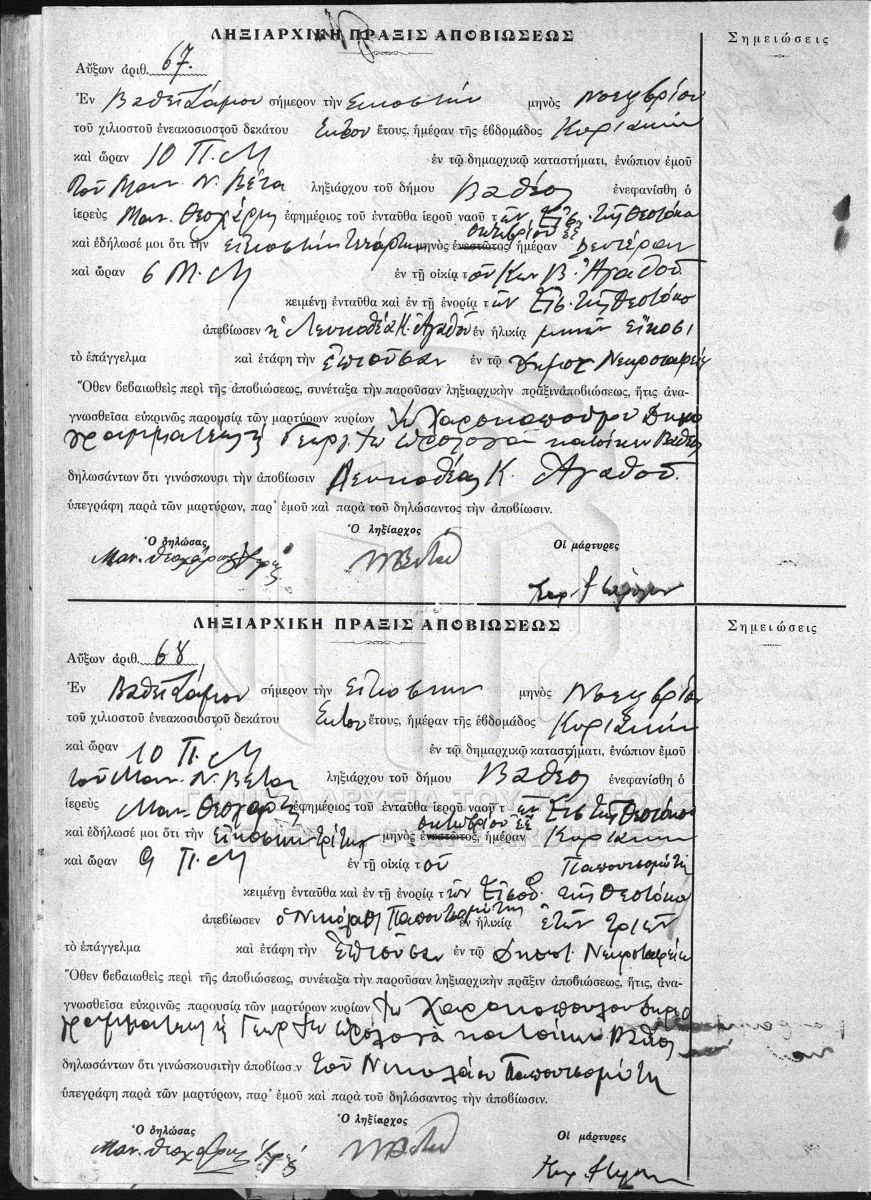 ΛΗΞΙΑΡΧΙΚΗ ΠΡΑΞΙΣ ΑΠΟΒΙΩΣΕΩΣ
Σημειώσεις
Αὔξων ἀριθ. 67.
Ἐν Βαθεῖ Σάμου σήμερον τὴν Εἰκοστὴν μηνὸς Νοεμβρίου
τοῦ χιλιοστοῦ ἐνεακοσιοστοῦ δεκάτου Ἕκτου ἔτους, ἡμέραν τῆς ἑβδομάδος Κυριακὴν
καὶ ὥραν 10 Π.Μ ἐν τῷ δημαρχικῷ καταστήματι, ἐνώπιον ἐμοῦ
τοῦ Μαν. Ν. Βέτα ληξιάρχου τοῦ δήμου Βαθέος ἐνεφανίσθη ὁ
ἱερεὺς Μαν. Θεοχάρης ἐφημέριος τοῦ ἐνταῦθα ἱεροῦ ναοῦ τῶν Εἰσ. τῆς Θεοτόκου
Ὀκτωβρίου ἐ.ἔ.
καὶ ἐδήλωσέ μοι ὅτι τὴν εἰκοστὴν τετάρτην μηνὸς ἐνεστῶτος ἡμέραν Δευτέραν
καὶ ὥραν 6 Μ.Μ ἐν τῇ οἰκίᾳ τοῦ Κων Β. Ἀγαθοῦ
κειμένῃ ἐνταῦθα καὶ ἐν τῇ ἐνορίᾳ τῶν Εἰσ. τῆς Θεοτόκο
ἀπεβίωσεν ἡ Λευκοθέα Κ. Ἀγαθοῦ ἐν ἡλικίᾳ μηνῶν εἴκοσι
τὸ ἐπάγγελμα καὶ ἐτάφη τὴν Ἐπιοῦσαν ἐν τῷ Δημοτ Νεκροταφείῳ
Ὅθεν βεβαιωθεὶς περὶ τῆς ἀποβιώσεως, συνέταξα τὴν παροῦσαν ληξιαρχικὴν πρᾶξινἀποβιώσεως, ἥτις ἀνα-
γνωσθεῖσα εὐκρινῶς παρουσίᾳ τῶν μαρτύρων κυρίων Χαρακοπούλου Δημο
γραμματέως ἢ Γεωργ. Ὡρολογᾶ κατοίκων Βαθέος
δηλωσάντων ὅτι γινώσκουσι τὴν ἀποβίωσιν Λευκοθέας Κ. Ἀγαθοῦ.
ὑπεγράφη παρὰ τῶν μαρτύρων, παρ' ἐμοῦ καὶ παρὰ τοῦ δηλώσαντος τὴν ἀποβίωσιν.
Ὁ δηλώσας Ὁ ληξίαρχος Οἱ μάρτυρες
Μαν. Θεοχάρης Ἱερεύς
ΛΗΞΙΑΡΧΙΚΗ ΠΡΑΞΙΣ ΑΠΟΒΙΩΣΕΩΣ
Σημειώσεις
Αὔξων ἀριθ. 68
Ἐν Βαθεῖ Σάμου σήμερον τὴν Εἰκοστὴν μηνὸς Νοεμβρίου
τοῦ χιλιοστοῦ ἐνεακοσιοστοῦ δεκάτου Ἕκτου ἔτους, ἡμέραν τῆς ἑβδομάδος Κυριακὴν
καὶ ὥραν 10 Π.Μ ἐν τῷ δημαρχικῷ καταστήματι, ἐνώπιον ἐμοῦ
τοῦ Μαν. Ν. Βέτα ληξιάρχου τοῦ δήμου Βαθέος ἐνεφανίσθη ὁ
ἱερεὺς Μαν. Θεοχάρης ἐφημέριος τοῦ ἐνταῦθα ἱεροῦ ναοῦ τῶν Εἰσ τῆς Θεοτόκου
Ὀκτωβρίου ἐ.ἔ.
καὶ ἐδήλωσέ μοι ὅτι τὴν εἰκοστὴν τρίτην μηνὸς ἐνεστῶτος, ἡμέραν Κυριακὴν
καὶ ὥραν 9 Π.Μ ἐν τῇ οἰκίᾳ τοῦ Παπουτσομύτη
κειμένῃ ἐνταῦθα καὶ ἐν τῇ ἐνορίᾳ τῶν Εἰσοδ. τῆς Θεοτόκου
ἀπεβίωσεν ὁ Νικόλαος Παπουτσομύτης ἐν ἡλικίᾳ ἐτῶν τριῶν
τὸ ἐπάγγελμα καὶ ἐτάφη τὴν Ἐπιοῦσαν ἐν τῷ Δημοτ. Νεκροταφείῳ
Ὅθεν βεβαιωθεὶς περὶ τῆς ἀποβιώσεως, συνέταξα τὴν παροῦσαν ληξιαρχικὴν πρᾶξιν ἀποβιώσεως, ἥτις, ἀνα-
γνωσθεῖσα εὐκρινῶς παρουσίᾳ τῶν μαρτύρων κυρίων Χαρακοπούλου Δημο
γραμματέως ἢ Γεωργ Ὡρολογᾶ κατοίκων Βαθέος
δηλωσάντων ὅτι γινώσκουσι τὴν ἀποβίωσιν τοῦ Νικολάου Παπουτσομύτη
ὑπεγράφη παρὰ τῶν μαρτύρων, παρ' ἐμοῦ καὶ παρὰ τοῦ δηλώσαντος τὴν ἀποβίωσιν.
Ὁ δηλώσας Ὁ ληξίαρχος Οἱ μάρτυρες
Μαν. Θεοχάρης Ἱερεύς